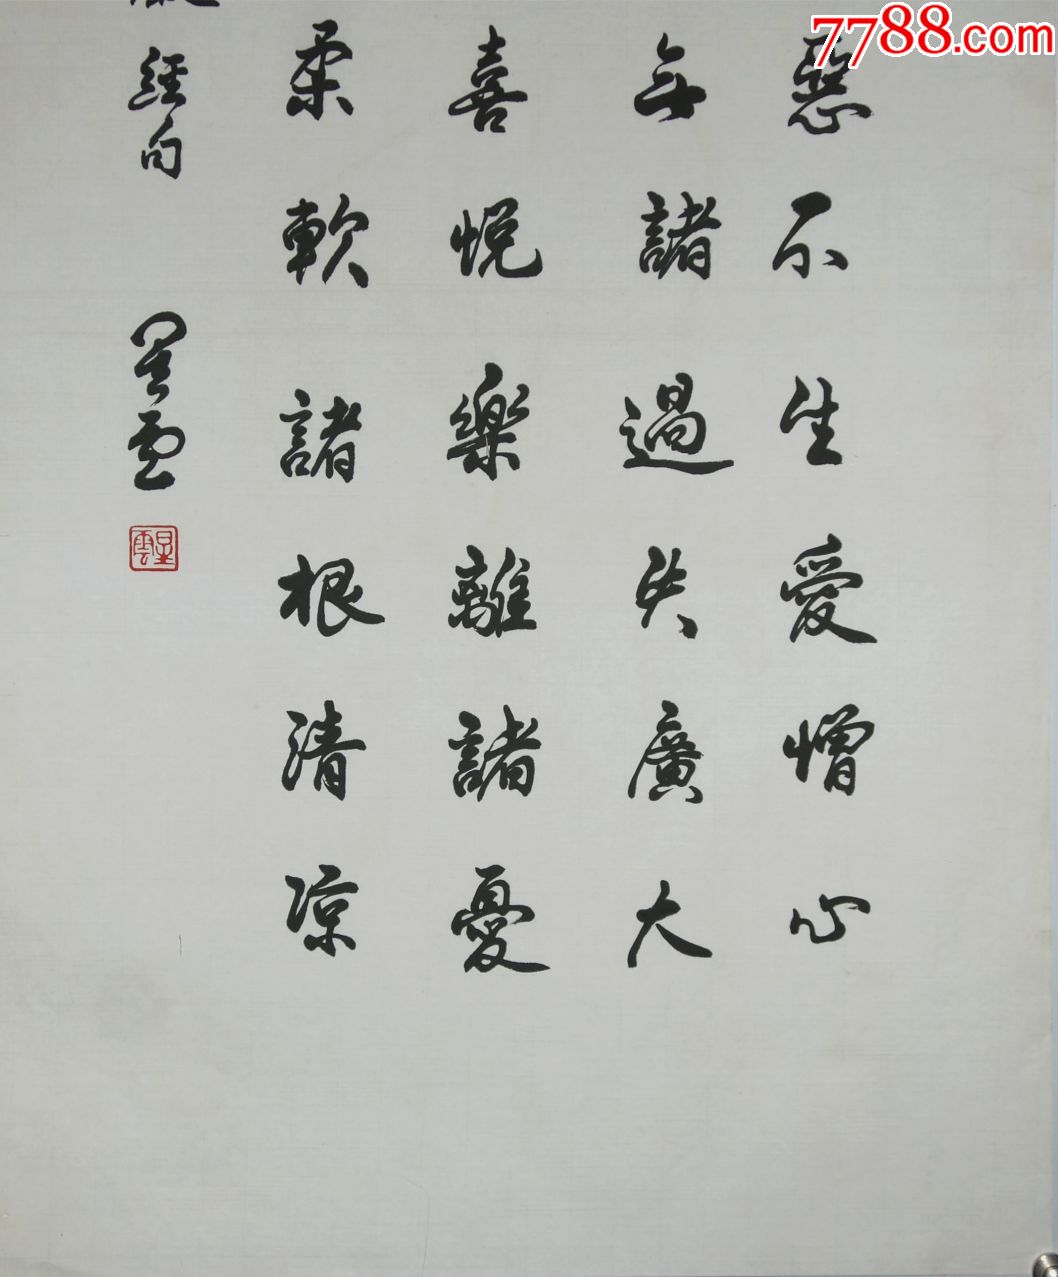 惡不生愛憎心
無諸過失廣大
喜悅樂離諸憂
柔軟諸根清凉
經句 星雲
星雲
7788.com